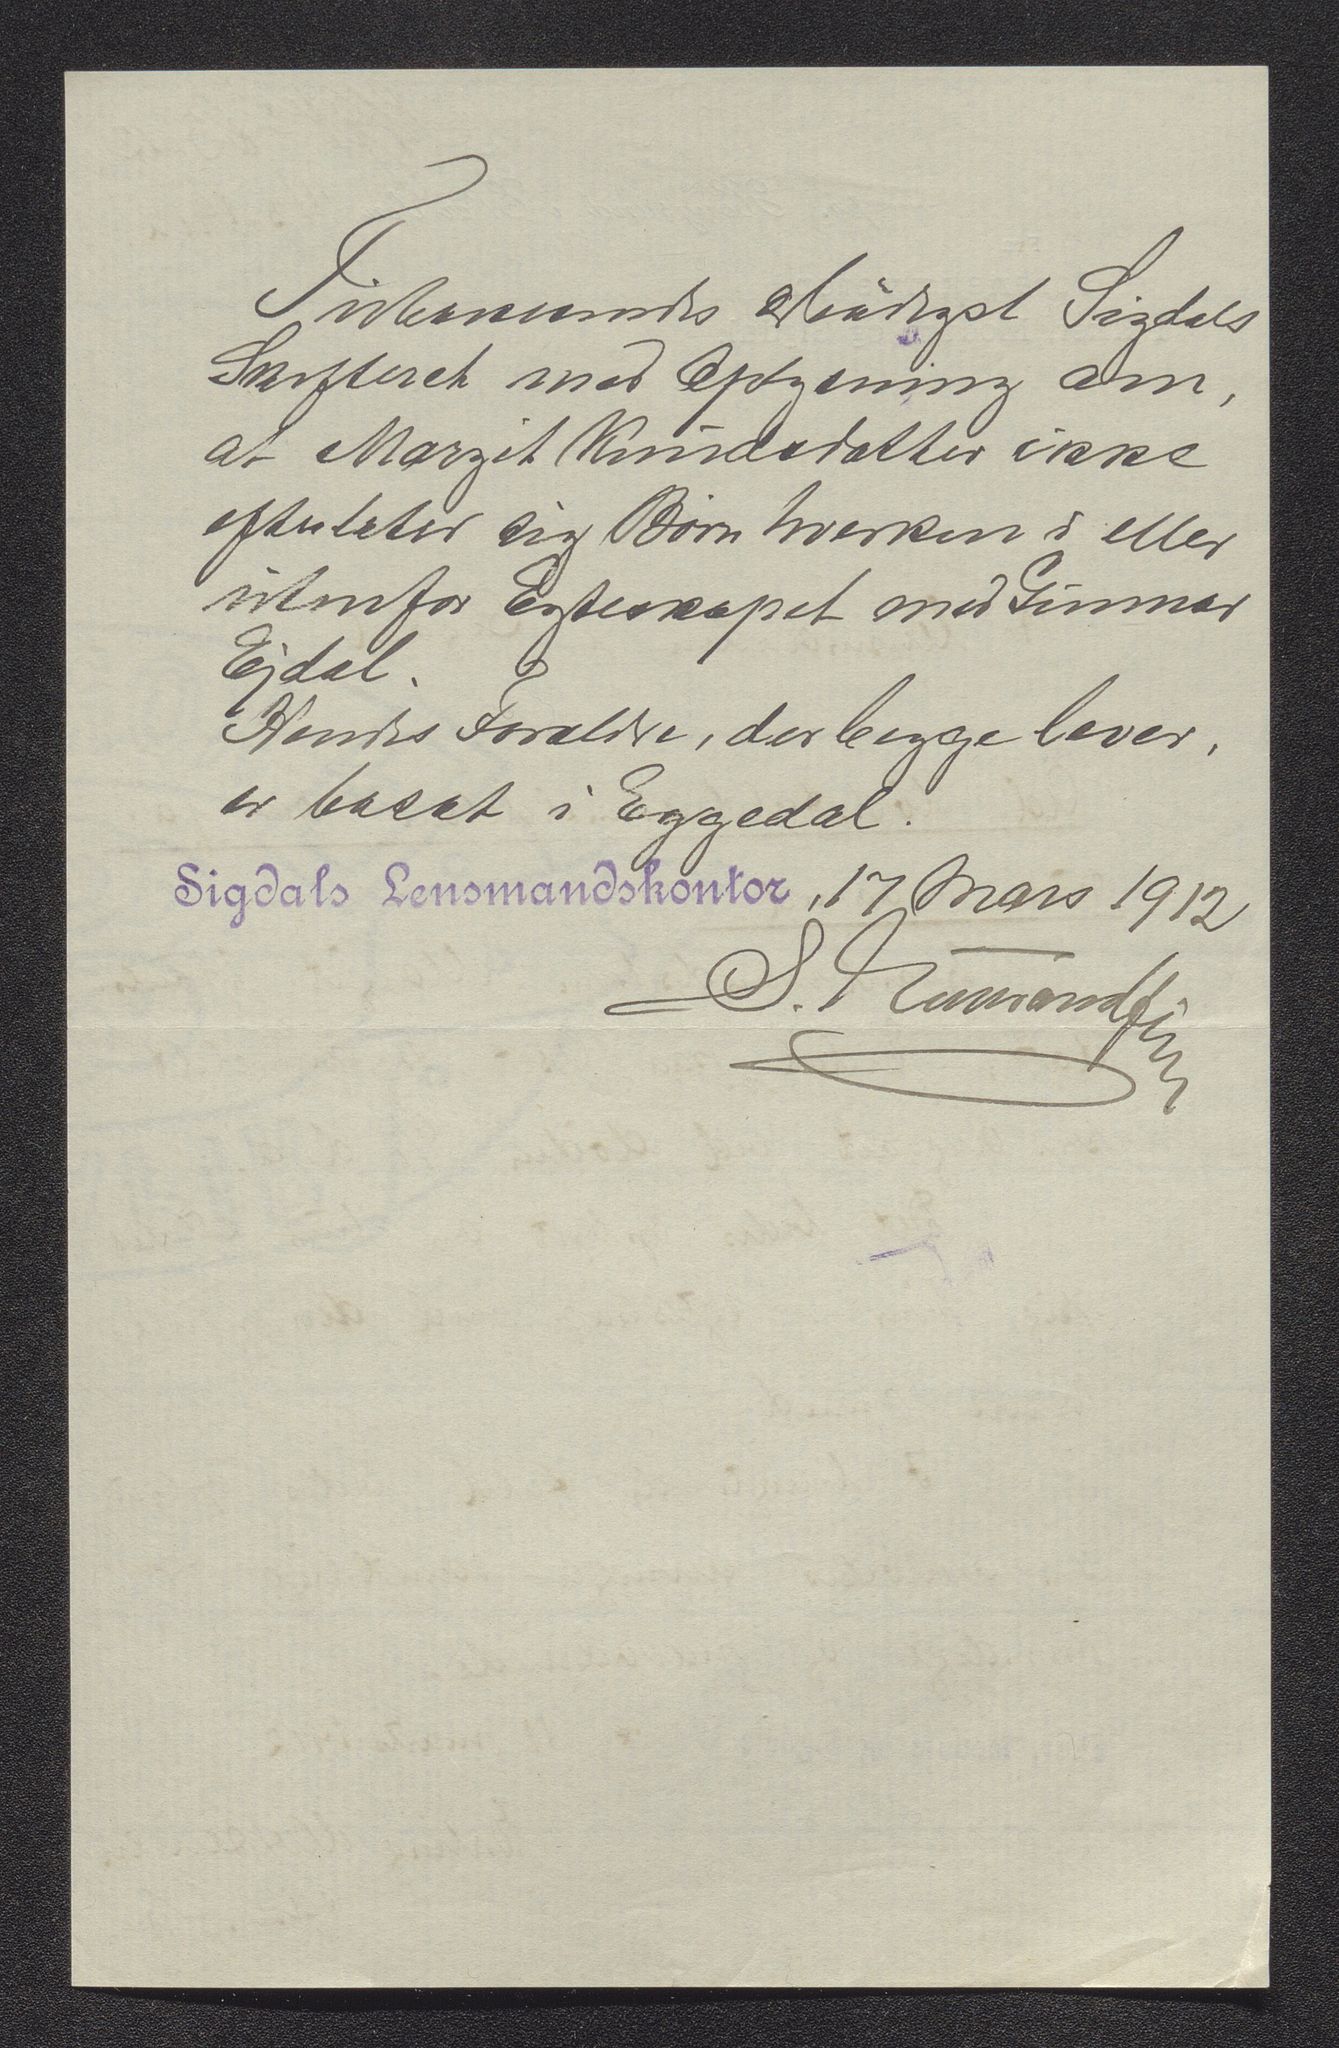 Tilbakesendes ærbødigst Sigdals
Skifteret med Oplysning om,
at Margit Knudsdatter ikke
efterlater sig Børn hverken i eller
utenfor Egteskapet med Gunnar
Ejdal.
Hendes Forældre, der begge lever,
er bosat i Eggedal.
Sigdals Lensmandskontor, 17 Mars 1912
S.